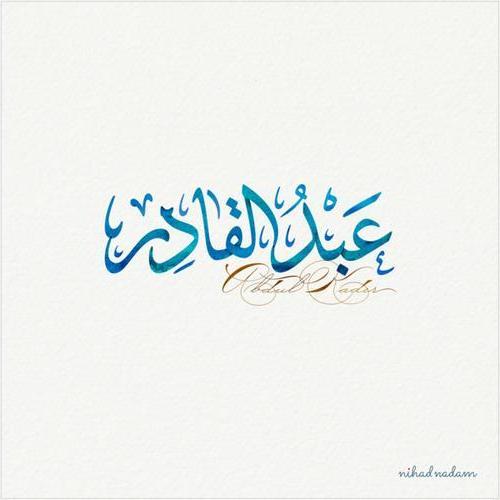 عَبْدُ القادِر
Abdul Kadir
nihad nadam